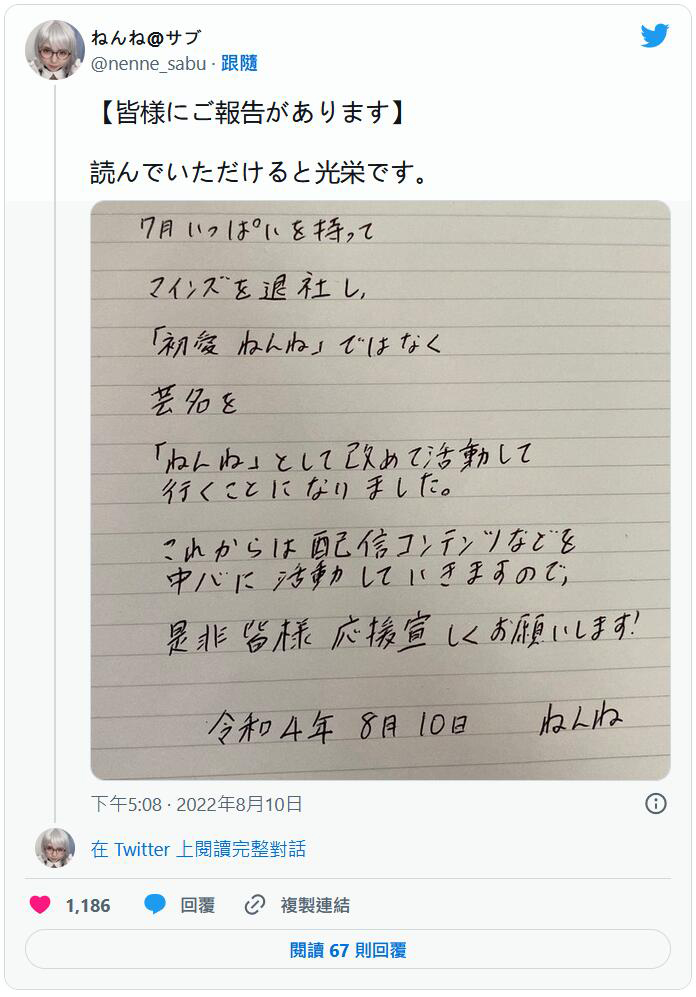 ねんね@サブ
@nenne_sabu · 跟隨
【皆様にご報告があります】
読んでいただけると光栄です。
7月いっぱいを持って
マインズを退社し,
「初愛 ねんね」ではなく
芸名を
「ねんね」として改めて活動して
行くことになりました。
これからは配信コンテンツなどを
中心に活動していきますので,
是非皆様 応援宣しくお願いします!
令和4年 8月10日 ねんね
下午5:08 · 2022年8月10日
在 Twitter 上閱讀完整對話
1,186 回覆 複製連結
閱讀 67 則回覆